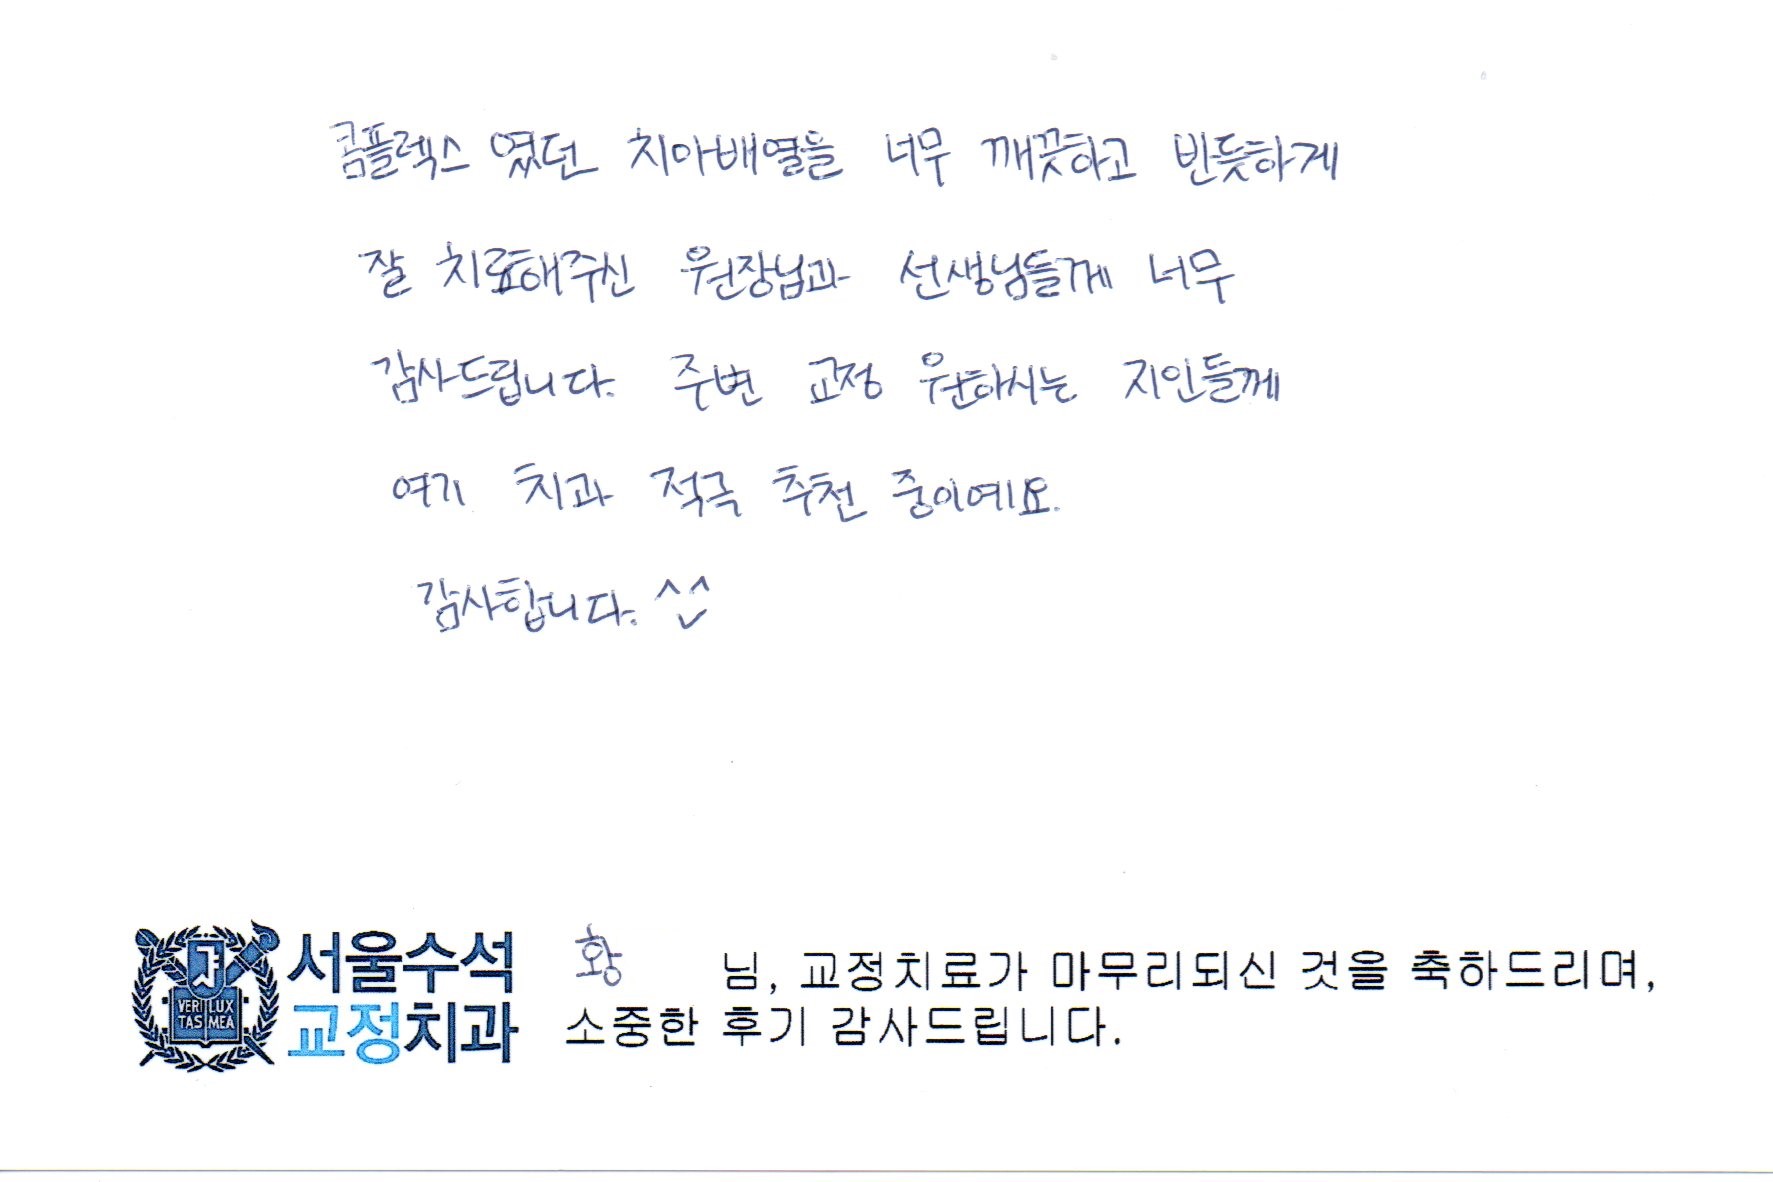 콤플렉스 였던 치아배열을 너무 깨끗하고 반듯하게
잘 치료해주신 원장님과 선생님들께 너무
감사드립니다. 주변 교정 원하시는 지인들께
여기 치과 적극 추천 중이에요.
감사합니다. ^^
서울수석
교정치과
VERI LUX
TAS MEA
황 님, 교정치료가 마무리되신 것을 축하드리며,
소중한 후기 감사드립니다.